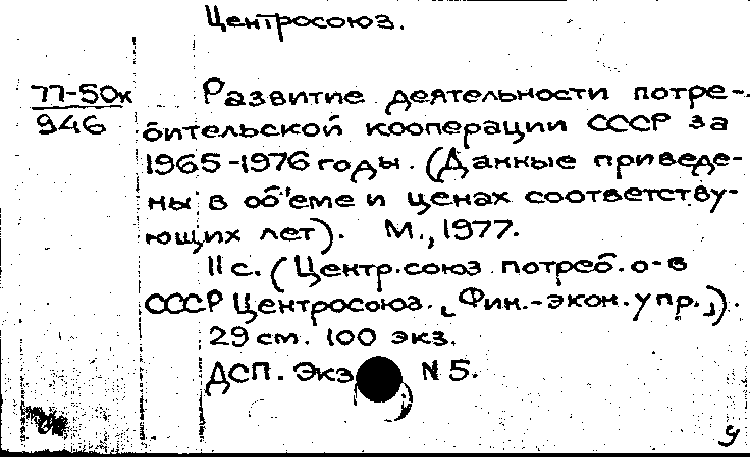 Центросоюз.
77-50к
946
Развитие деятельности потре-
бительской кооперации СССР за
1965-1976 годы. (Данные приведе-
ны в об'еме и ценах соответству-
ющих лет). М., 1977.
11 с. (Центр. союз потреб. о-в
СССР Центросоюз. [Фин.-экон. упр.]).
29 см. 100 экз.
ДСП. Экз N 5.